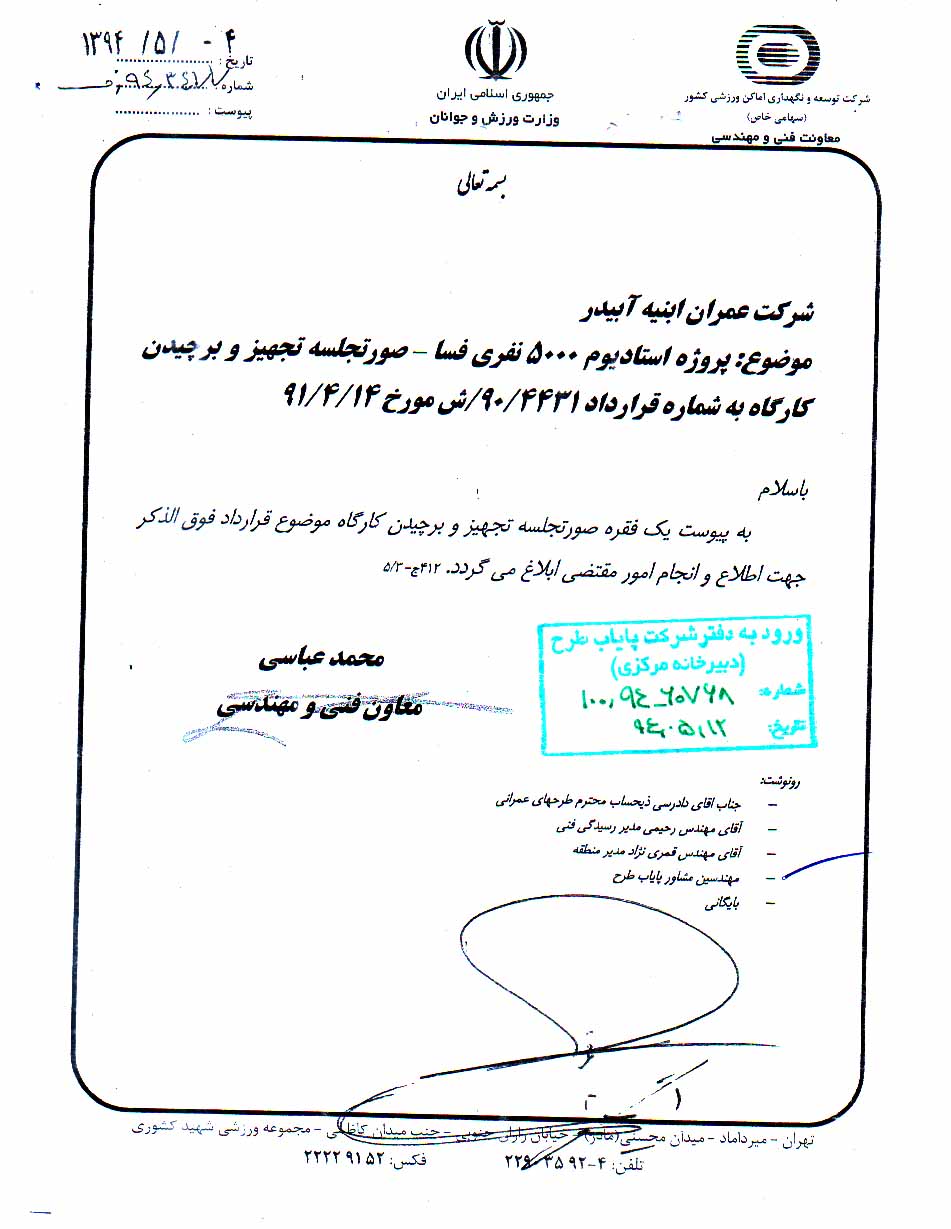 شرکت توسعه و نگهداری اماکن ورزشی کشور
(سهامی خاص)
معاونت فنی و مهندسی
جمهوری اسلامی ایران
وزارت ورزش و جوانان
تاریخ : ۱۳۹۴ /۵/ - ۴
شماره :
پیوست :
بسمه تعالی
شرکت عمران ابنیه آبیدر
موضوع: پروژه استادیوم ۵۰۰۰ نفری فسا – صورتجلسه تجهیز و برچیدن
کارگاه به شماره قرارداد ۹۰/۴۴۳۱/ش مورخ ۹۱/۴/۱۴
باسلام
به پیوست یک فقره صورتجلسه تجهیز و برچیدن کارگاه موضوع قرارداد فوق الذکر
جهت اطلاع و انجام امور مقتضی ابلاغ می گردد. ۴۱۲ج-۵/۳
محمد عباسی
معاون فنی و مهندسی
ورود به دفتر شرکت پایاب طرح
(دبیرخانه مرکزی)
شماره:
تاریخ: ۹۴٫۰۵٫۱۲
رونوشت:
– جناب اقای دادرسی ذیحساب محترم طرحهای عمرانی
– آقای مهندس رحیمی مدیر رسیدگی فنی
– آقای مهندس قمری نژاد مدیر منطقه
– مهندسین مشاور پایاب طرح
– بایگانی
تهران – میرداماد – میدان محسنی(مادر) – خیابان رازان جنوبی – جنب میدان کاظمی – مجموعه ورزشی شهید کشوری
تلفن: ۴-۲۲۹۰۳۵۹۲ فکس: ۲۲۲۲۹۱۵۲